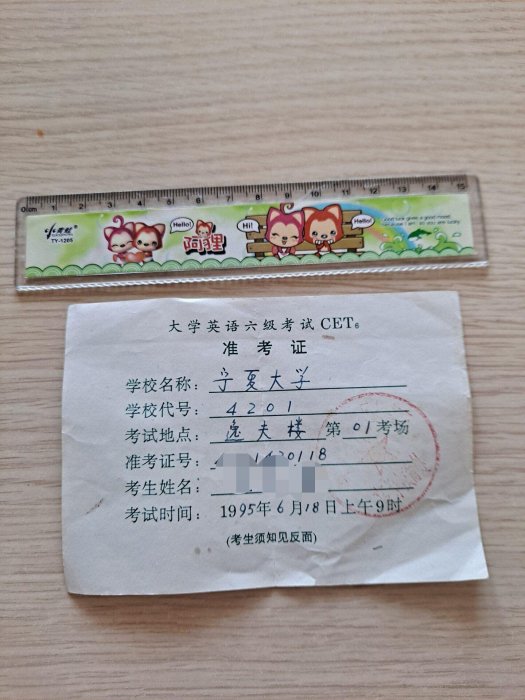 0 cm 1 2 3 4 5 6 7 8 9 10 11 12 13 14 15
TY-1205
Hello!
阿狸
Hi!
Hello!
大学英语六级考试CET₆
准考证
学校名称：宁夏大学
学校代号：4201
考试地点：逸夫楼 第01考场
准考证号：
考生姓名：
考试时间：1995年6月18日上午9时
(考生须知见反面)